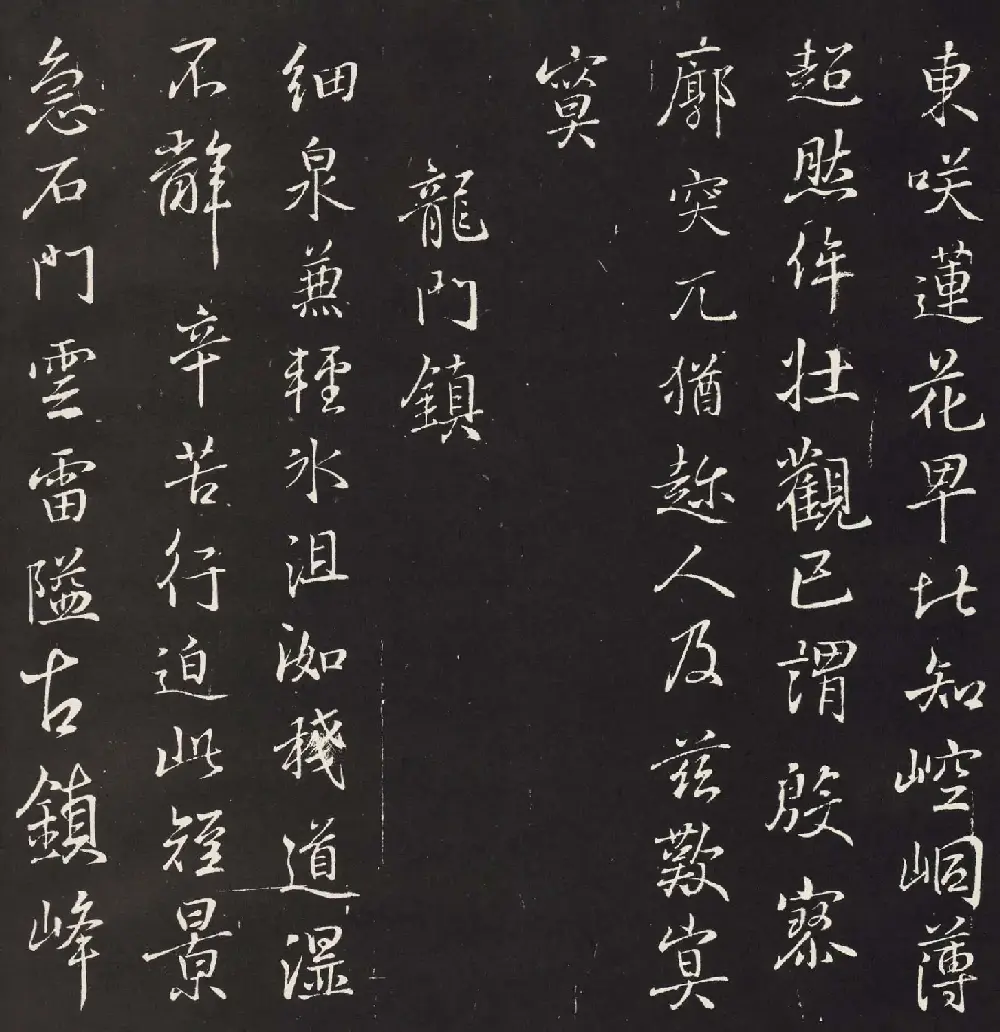 東咲蓮花卑北知崆峒薄
超然侔壯觀已謂殷寥
廓突兀猶趂人及茲歎冥
寞
龍門鎮
細泉兼輕冰沮洳棧道濕
不辭辛苦行迫此短景
急石門雲雷隘古鎮峰